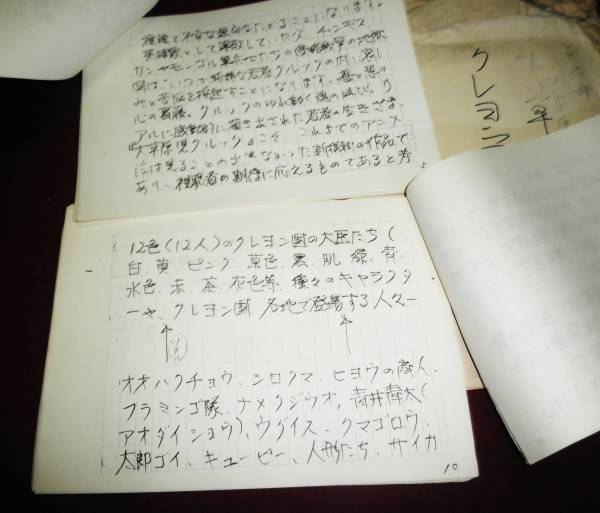 復権で不幸な運命をたどることになります。
英雄をとして尊敬していた父、チンギス・
カンやモンゴル軍兵士たちの侵略戦争の地獄
図は、いつか純粋な若者クルックの内に哀し
みと苦悩を抱き起すことになります。善と悪の
心の葛藤。クルックのゆれ動く魂の叫び。リ
アルに感動的に描き出された若者の生きざま、
『大草原児クルック』こそ、これまでのアニメ
には見ることの出来なかった新機軸の作品で
あり、視聴者の期待に応えるものであると考
5
クレヨン
12色(12人)のクレヨン国の大臣たち(
白、黄、ピンク、草色、黒、肌、緑、青、
水色、赤、茶、灰色等、種々のキャラクタ
ーや、クレヨン国各地で登場する人々―
オオハクチョウ、シロクマ、ヒョウの商人、
フラミンゴ隊、ナメクジウオ、青井青太(
アオダイショウ)、ウグイス、クマゴロウ、
太郎ゴイ、キューピー、人形たち、サイカ
10